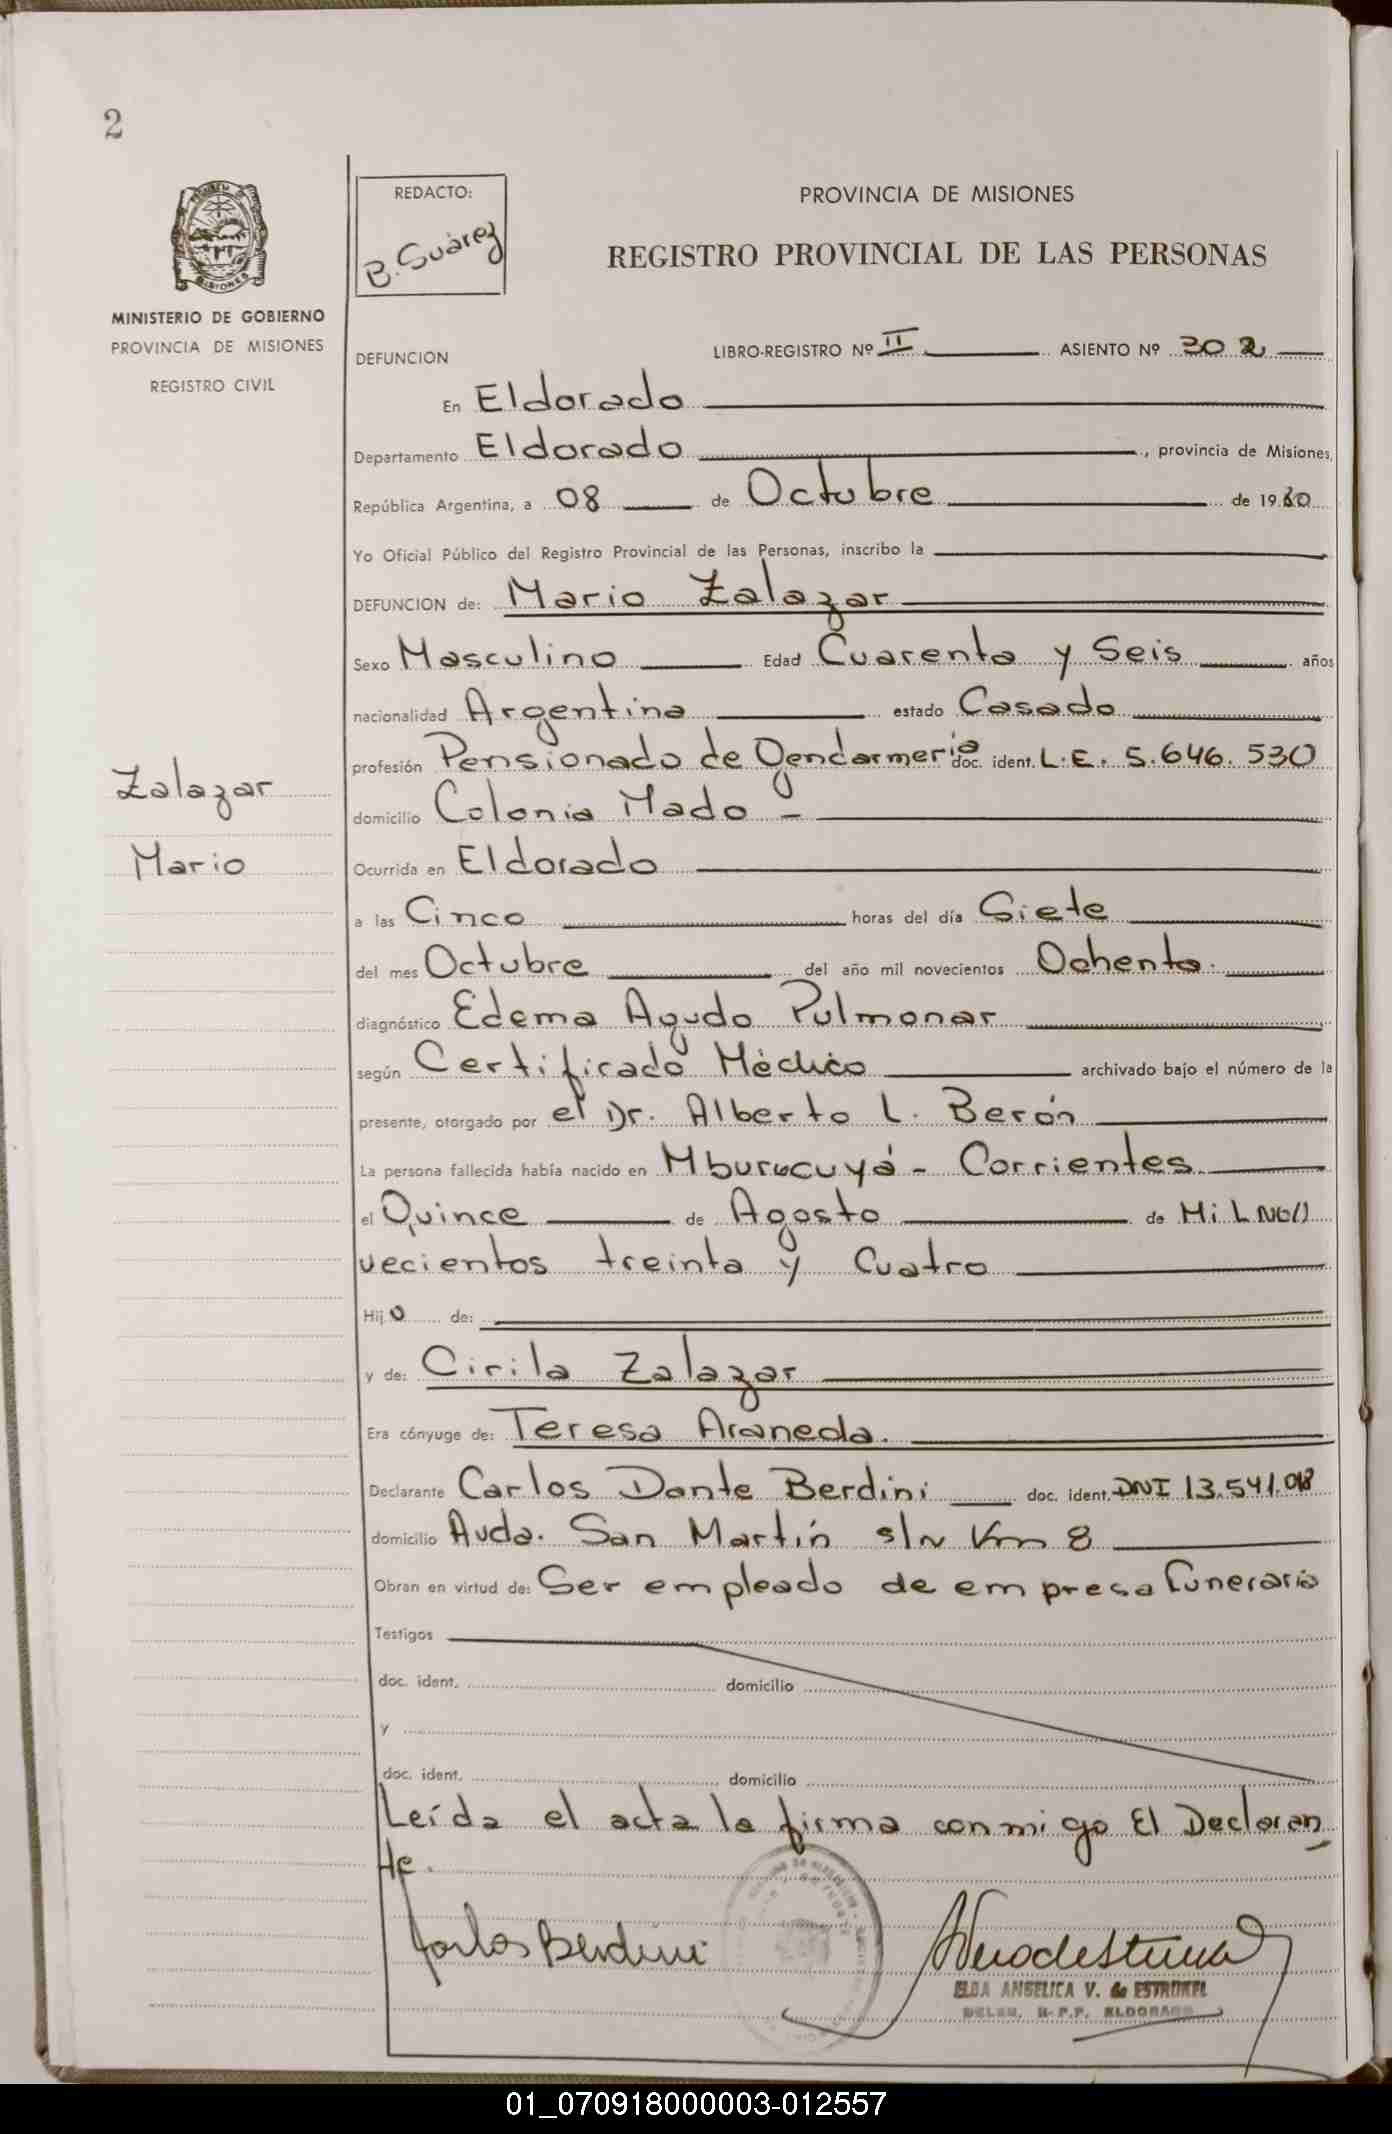 2
REDACTO:
B. Suárez
PROVINCIA DE MISIONES
REGISTRO PROVINCIAL DE LAS PERSONAS
MISIONES
MINISTERIO DE GOBIERNO
PROVINCIA DE MISIONES
REGISTRO CIVIL
DEFUNCION LIBRO-REGISTRO Nº II ASIENTO Nº 302
En Eldorado
Departamento Eldorado, provincia de Misiones,
República Argentina, a 08 de Octubre de 1980
Yo Oficial Público del Registro Provincial de las Personas, inscribo la
DEFUNCION de: Mario Zalazar
Sexo Masculino Edad Cuarenta y Seis años
nacionalidad Argentina estado Casado
profesión Pensionado de Gendarmeria doc. ident. L.E. 5.646.530
Zalazar
Mario
domicilio Colonia Mado -
Ocurrida en Eldorado
a las Cinco horas del día Siete
del mes Octubre del año mil novecientos Ochenta.
diagnóstico Edema Agudo Pulmonar
según Certificado Médico archivado bajo el número de la
presente, otorgado por el Dr. Alberto L. Berón
La persona fallecida había nacido en Mburucuyá - Corrientes
el Quince de Agosto de Mil No
vecientos treinta y Cuatro
Hijo de:
y de: Cirila Zalazar
Era cónyuge de: Teresa Araneda.
Declarante Carlos Dante Berdini doc. ident. DNI 13.541.018
domicilio Avda. San Martín s/n Km 8
Obran en virtud de: Ser empleado de empresa funeraria
Testigos
doc. ident. domicilio
y
doc. ident. domicilio
Leída el acta la firma conmigo El Declaran
te.
Carlos Berdini
ELDA ANGELICA V. de ESTRUMEL
DELEG. R.P.P. ELDORADO
01_070918000003-012557